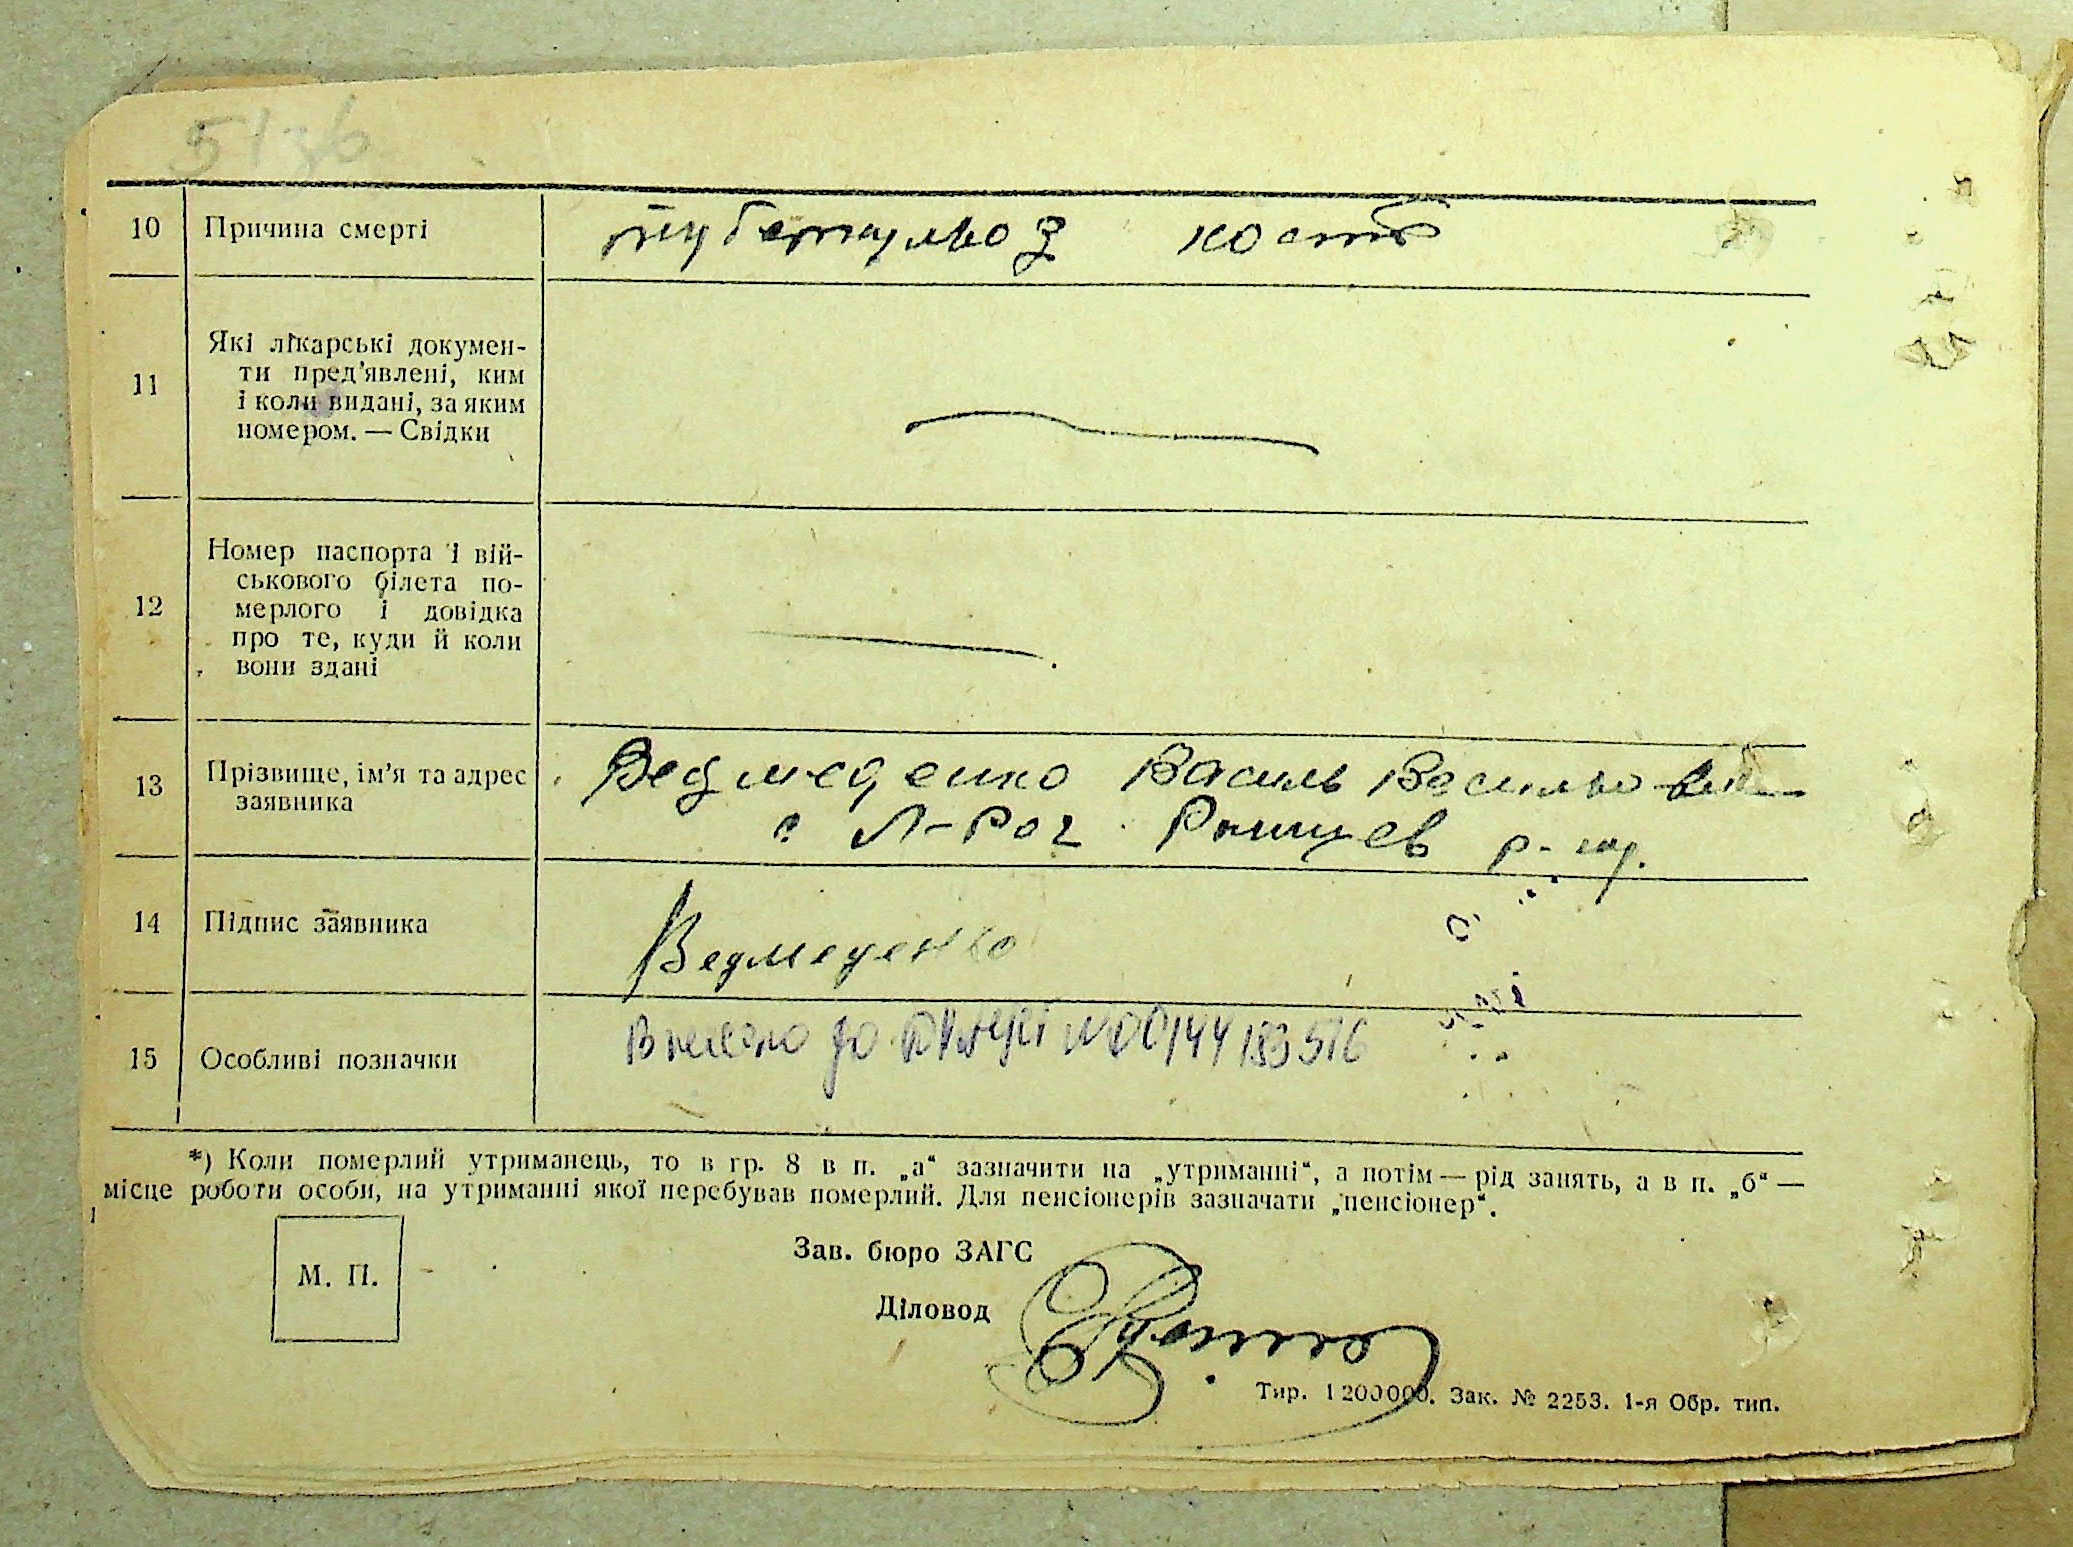 51зв
10 Причина смерті туберкульоз кості
11 Які лікарські докумен-
ти пред'явлені, ким
і коли видані, за яким
номером. — Свідки
12 Номер паспорта і вій-
ськового білета по-
мерлого і довідка
про те, куди й коли
вони здані
13 Прізвище, ім'я та адрес Ведмеденко Василь Васильович
заявника с. Л-Рог р-ну.
14 Підпис заявника Ведмеденко
15 Особливі позначки Внесено до №00144183516
*) Коли померлий утриманець, то в гр. 8 в п. „а“ зазначити на „утриманні“, а потім — рід занять, а в п. „б“ —
місце роботи особи, на утриманні якої перебував померлий. Для пенсіонерів зазначати „пенсіонер“.
М. П.
Зав. бюро ЗАГС
Діловод
Тир. 1200000. Зак. № 2253. 1-я Обр. тип.